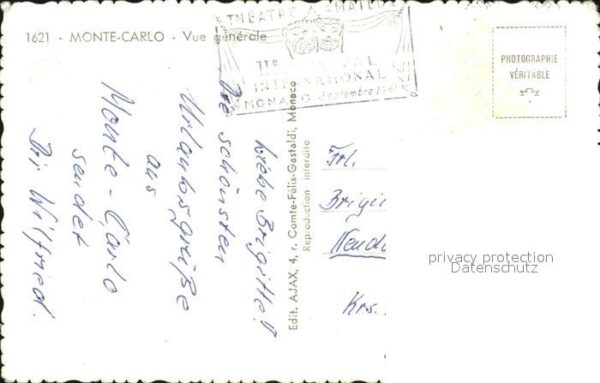 1621 - MONTE-CARLO - Vue générale
THÉATRE AMATEUR
FESTIVAL
INTERNATIONAL
MONACO Septembre 1961
PHOTOGRAPHIE
VÉRITABLE
Liebe Brigitte!
Die schönsten
Urlaubsgrüße
aus
Monte-Carlo
sendet
Dir Wilfried.
Edit. AJAX, 4, r. Comte-Félix-Gastaldi, Monaco
Reproduction interdite
Frl.
Brigi
Neud
Krs.
privacy protection
Datenschutz